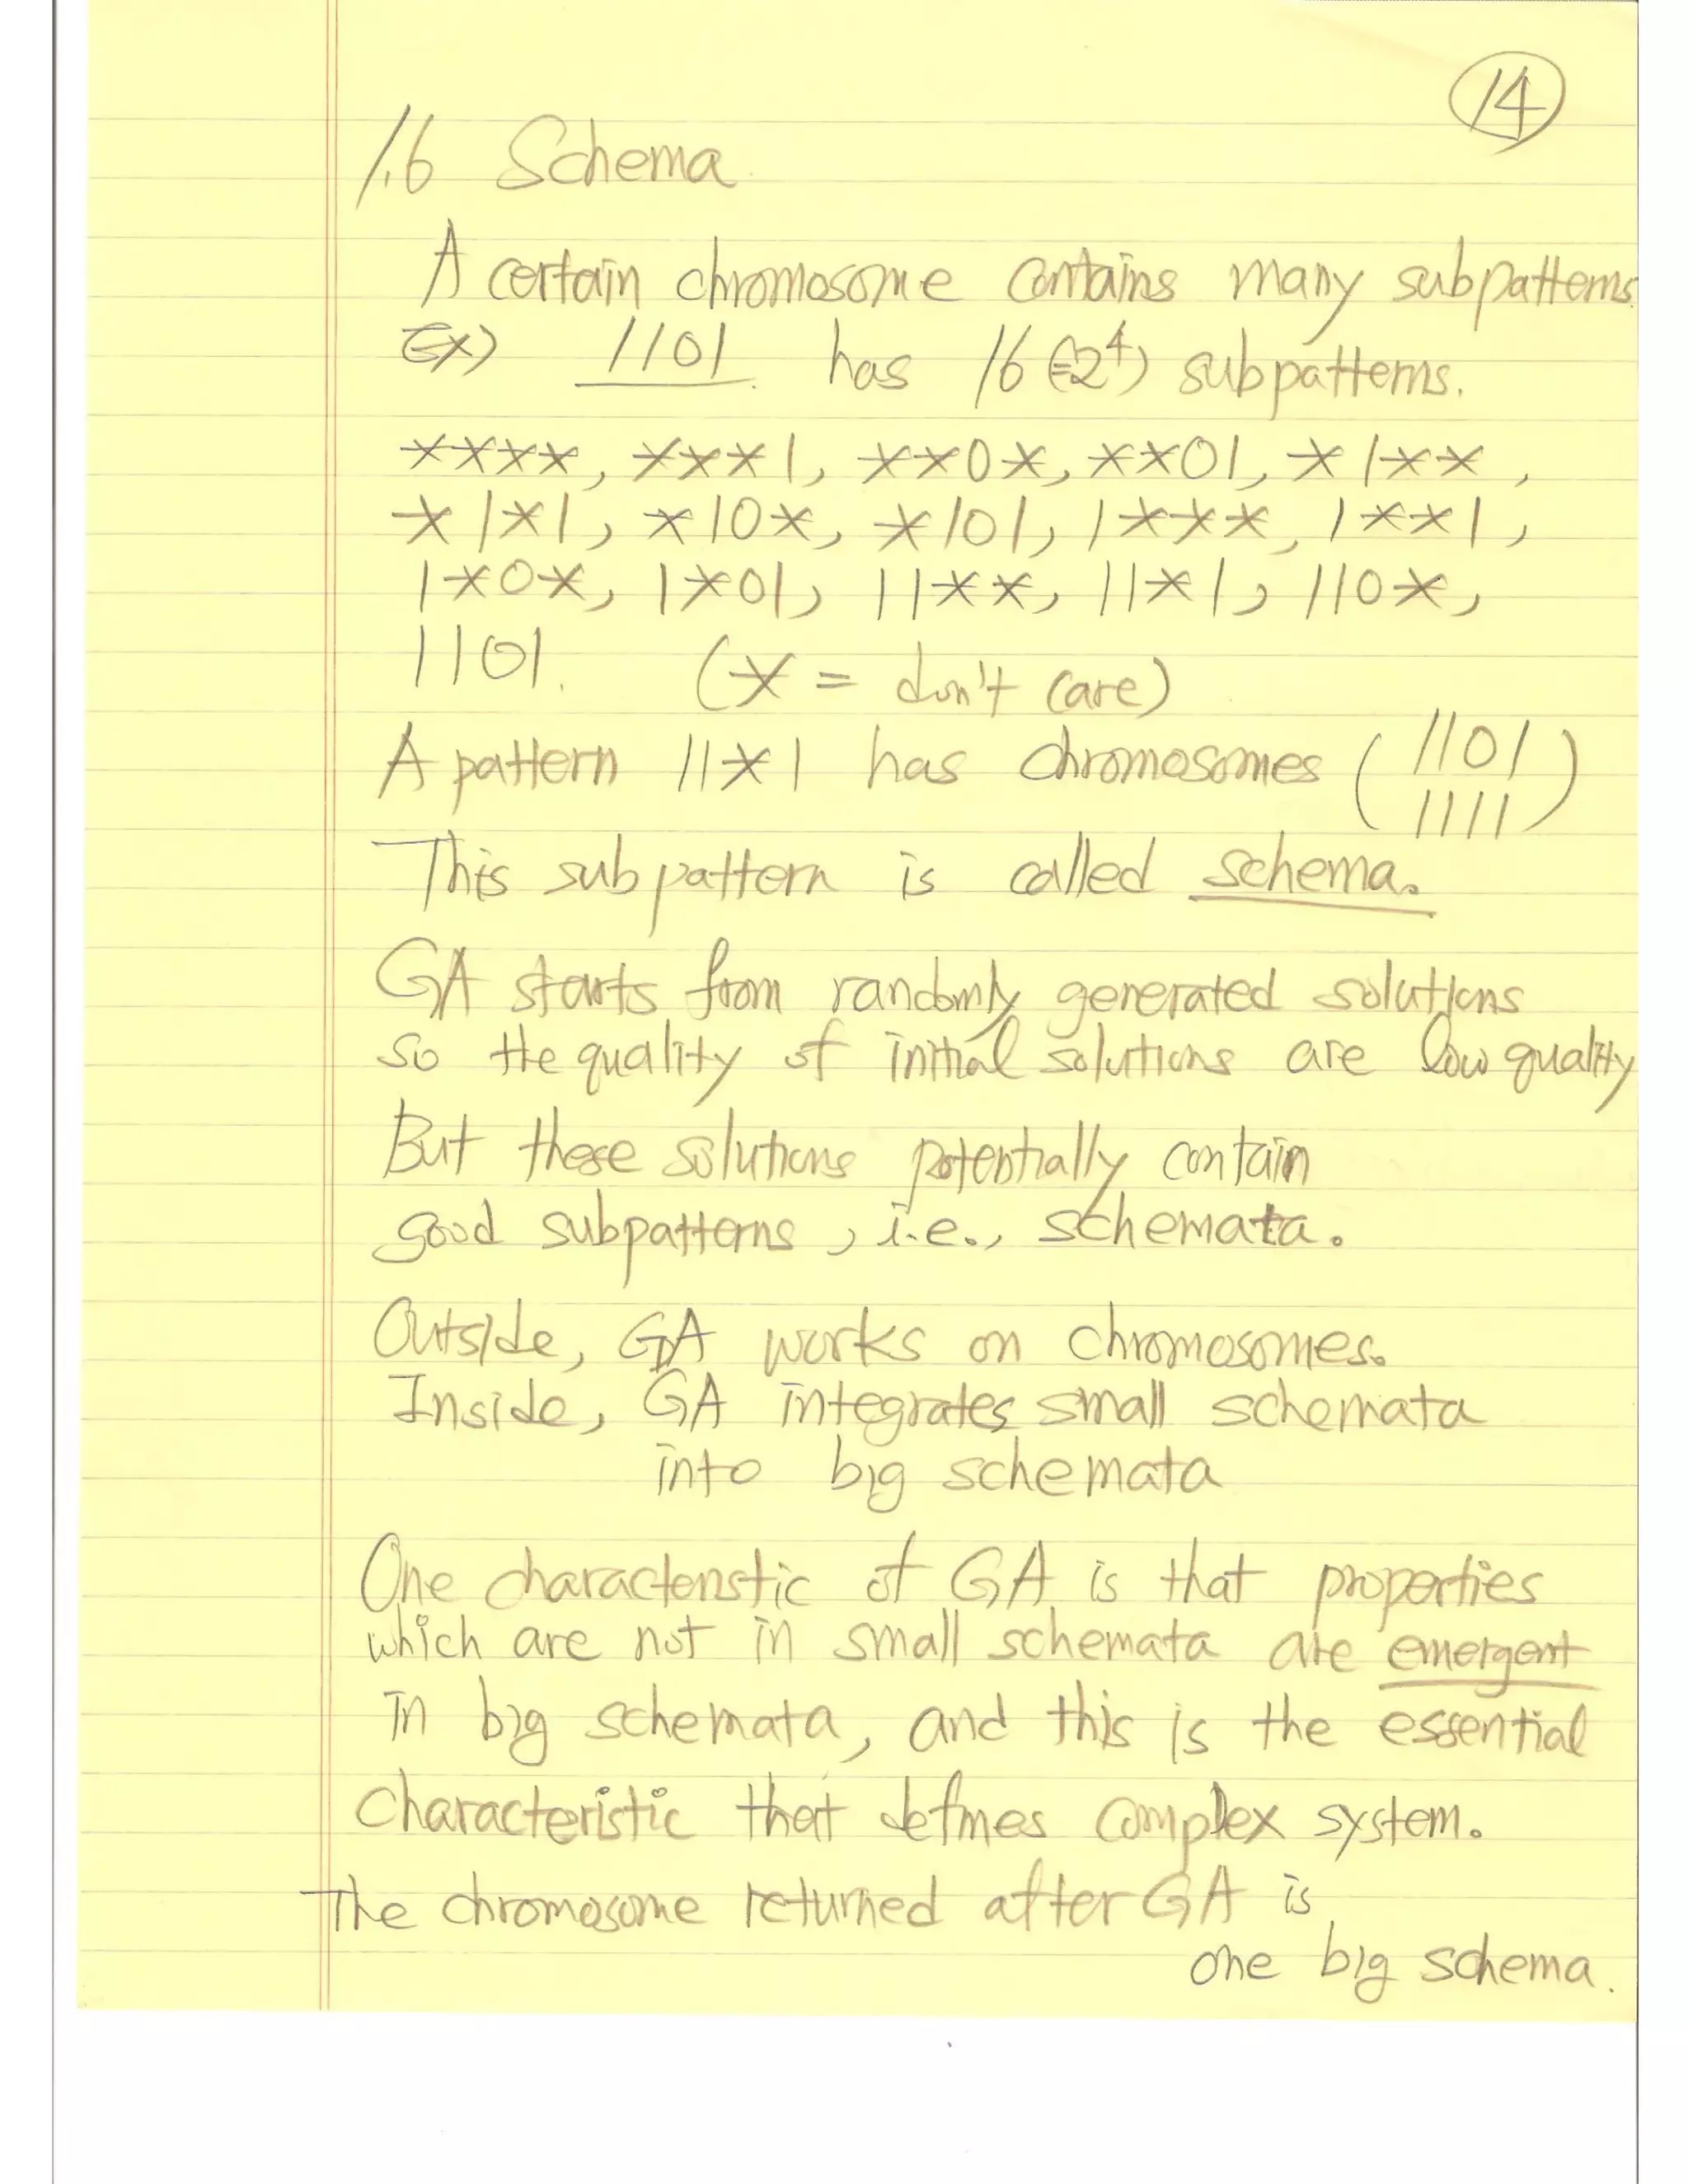 14
1.6 Schema
A certain chromosome contains many subpatterns.
Ex) 1101 has 16 (=2⁴) subpatterns.
****, ***1, **0*, **01, *1**,
*1*1, *10*, *101, 1***, 1**1,
1*0*, 1*01, 11**, 11*1, 110*,
1101. (* = don't care)
A pattern 11*1 has chromosomes (1101
1111)
This subpattern is called schema.
GA starts from randomly generated solutions
so the quality of initial solutions are low quality
But these solutions potentially contain
good subpatterns, i.e., schemata.
Outside, GA works on chromosomes.
Inside, GA integrates small schemata
into big schemata
One characteristic of GA is that properties
which are not in small schemata are emergent
in big schemata, and this is the essential
characteristic that defines complex system.
The chromosome returned after GA is
one big schema.